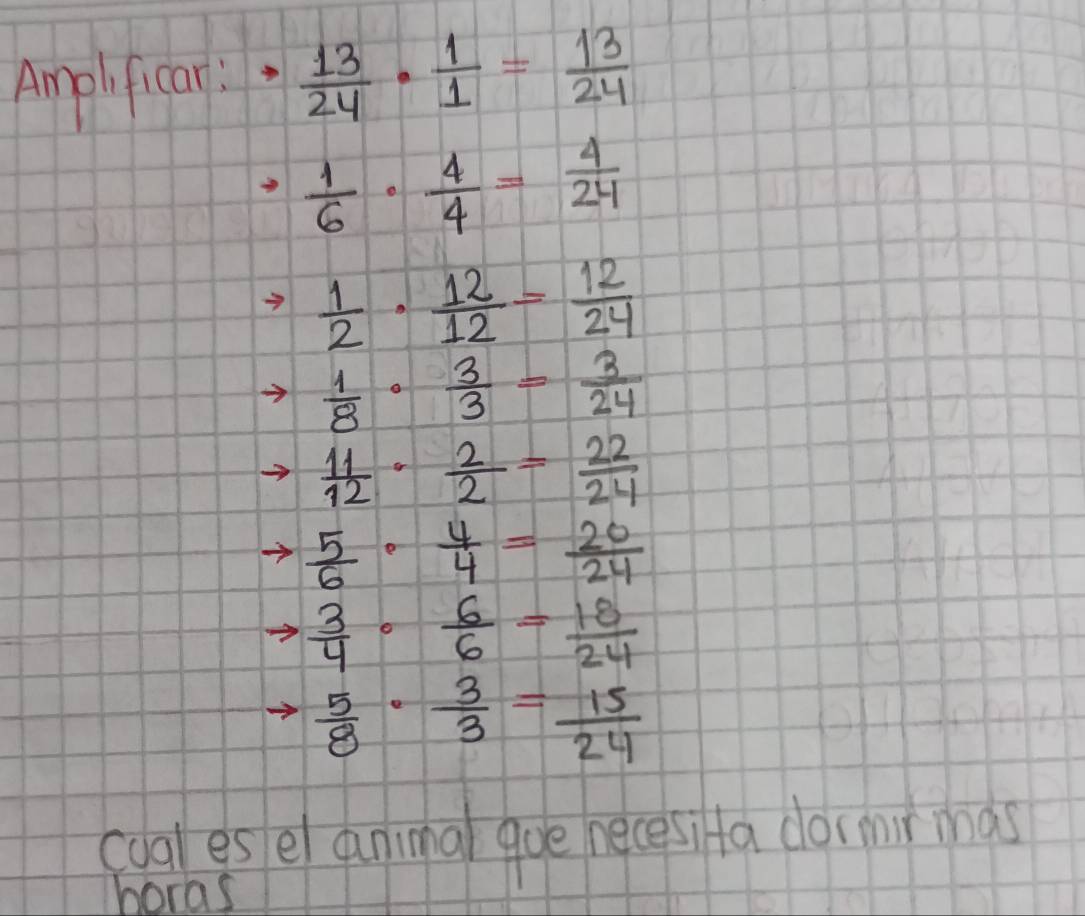 Amplificar: → 13/24 · 1/1 = 13/24
→ 1/6 · 4/4 = 4/24
→ 1/2 · 12/12 = 12/24
→ 1/8 · 3/3 = 3/24
→ 11/12 · 2/2 = 22/24
→ 5/6 · 4/4 = 20/24
→ 3/4 · 6/6 = 18/24
→ 5/8 · 3/3 = 15/24
cual es el animal que necesitta dormir mas
horas